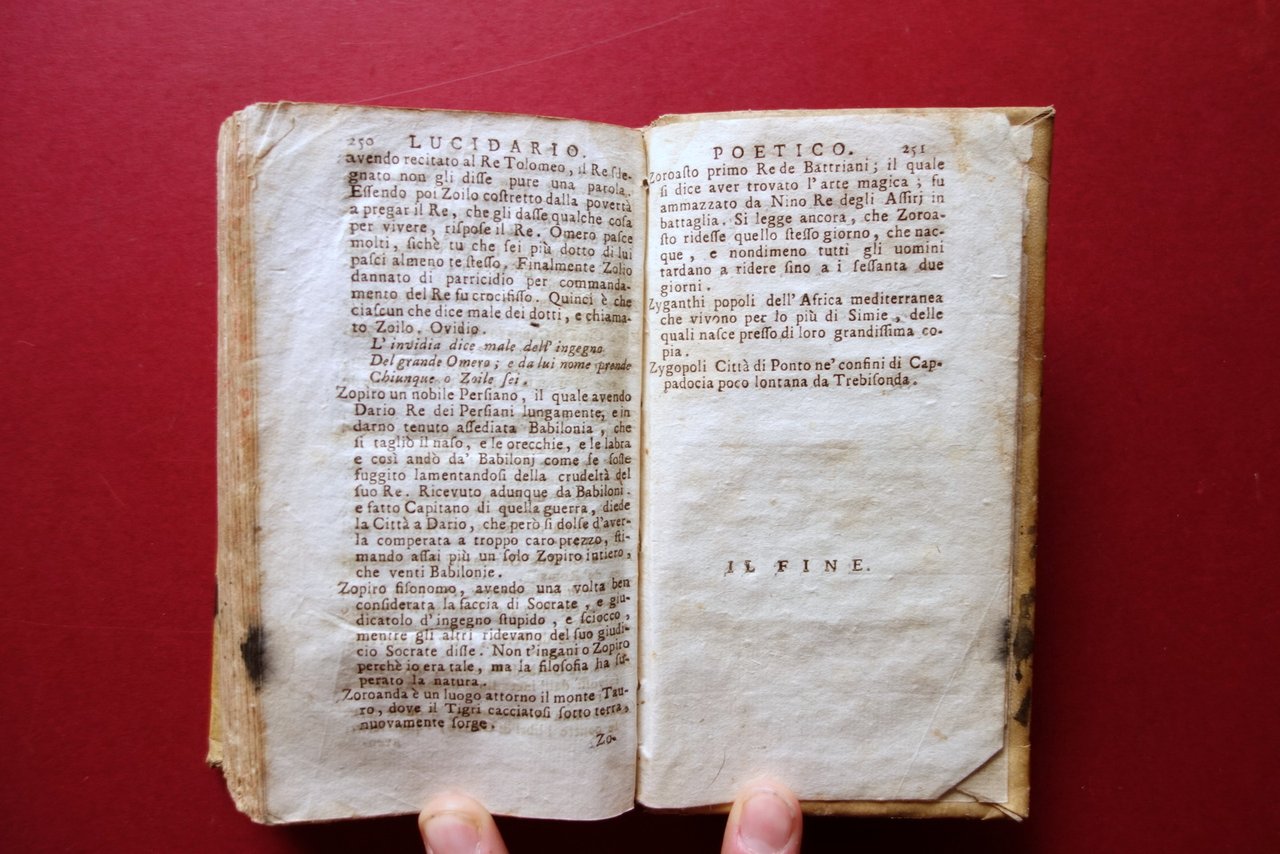 250 LUCIDARIO.
avendo recitato al Re Tolomeo, il Re ſde-
gnato non gli diſſe pure una parola.
Eſſendo poi Zoilo coſtretto dalla povertà
a pregar il Re, che gli daſſe qualche coſa
per vivere, riſpoſe il Re. Omero paſce
molti, ſichè tu che ſei più dotto di lui
paſci almeno te ſteſſo. Finalmente Zolio
dannato di parricidio per commanda-
mento del Re fu crocifiſſo. Quinci è che
ciaſcun che dice male dei dotti, e chiama-
to Zoilo. Ovidio.
L'invidia dice male dell'ingegno
Del grande Omero; e da lui nome prende
Chiunque o Zoile ſei.
Zopiro un nobile Perſiano, il quale avendo
Dario Re dei Perſiani lungamente, e in
darno tenuto aſſediata Babilonia, che
ſi tagliò il naſo, e le orecchie, e le labra
e così andò da' Babilonj come ſe foſſe
fuggito lamentandoſi della crudeltà del
ſuo Re. Ricevuto adunque da Babiloni.
e fatto Capitano di quella guerra, diede
la Città a Dario, che però ſi dolſe d'aver-
la comperata a troppo caro prezzo, ſti-
mando aſſai più un ſolo Zopiro intiero,
che venti Babilonie.
Zopiro fiſonomo, avendo una volta ben
conſiderata la faccia di Socrate, e giu-
dicatolo d'ingegno ſtupido, e ſciocco,
mentre gli altri ridevano del ſuo giudi-
cio Socrate diſſe. Non t'ingani o Zopiro
perchè io era tale, ma la filoſofia ha ſu-
perato la natura.
Zoroanda è un luogo attorno il monte Tau-
ro, dove il Tigri cacciatoſi ſotto terra,
nuovamente ſorge.
Zo-
POETICO. 251
Zoroaſto primo Re de Battriani; il quale
ſi dice aver trovato l'arte magica; fu
ammazzato da Nino Re degli Aſſirj in
battaglia. Si legge ancora, che Zoroa-
ſto rideſſe quello ſteſſo giorno, che nac-
que, e nondimeno tutti gli uomini
tardano a ridere ſino a i ſeſſanta due
giorni.
Zyganthi popoli dell'Africa mediterranea
che vivono per lo più di Simie, delle
quali naſce preſſo di loro grandiſſima co-
pia.
Zygopoli Città di Ponto ne' confini di Cap-
padocia poco lontana da Trebiſonda.
IL FINE.